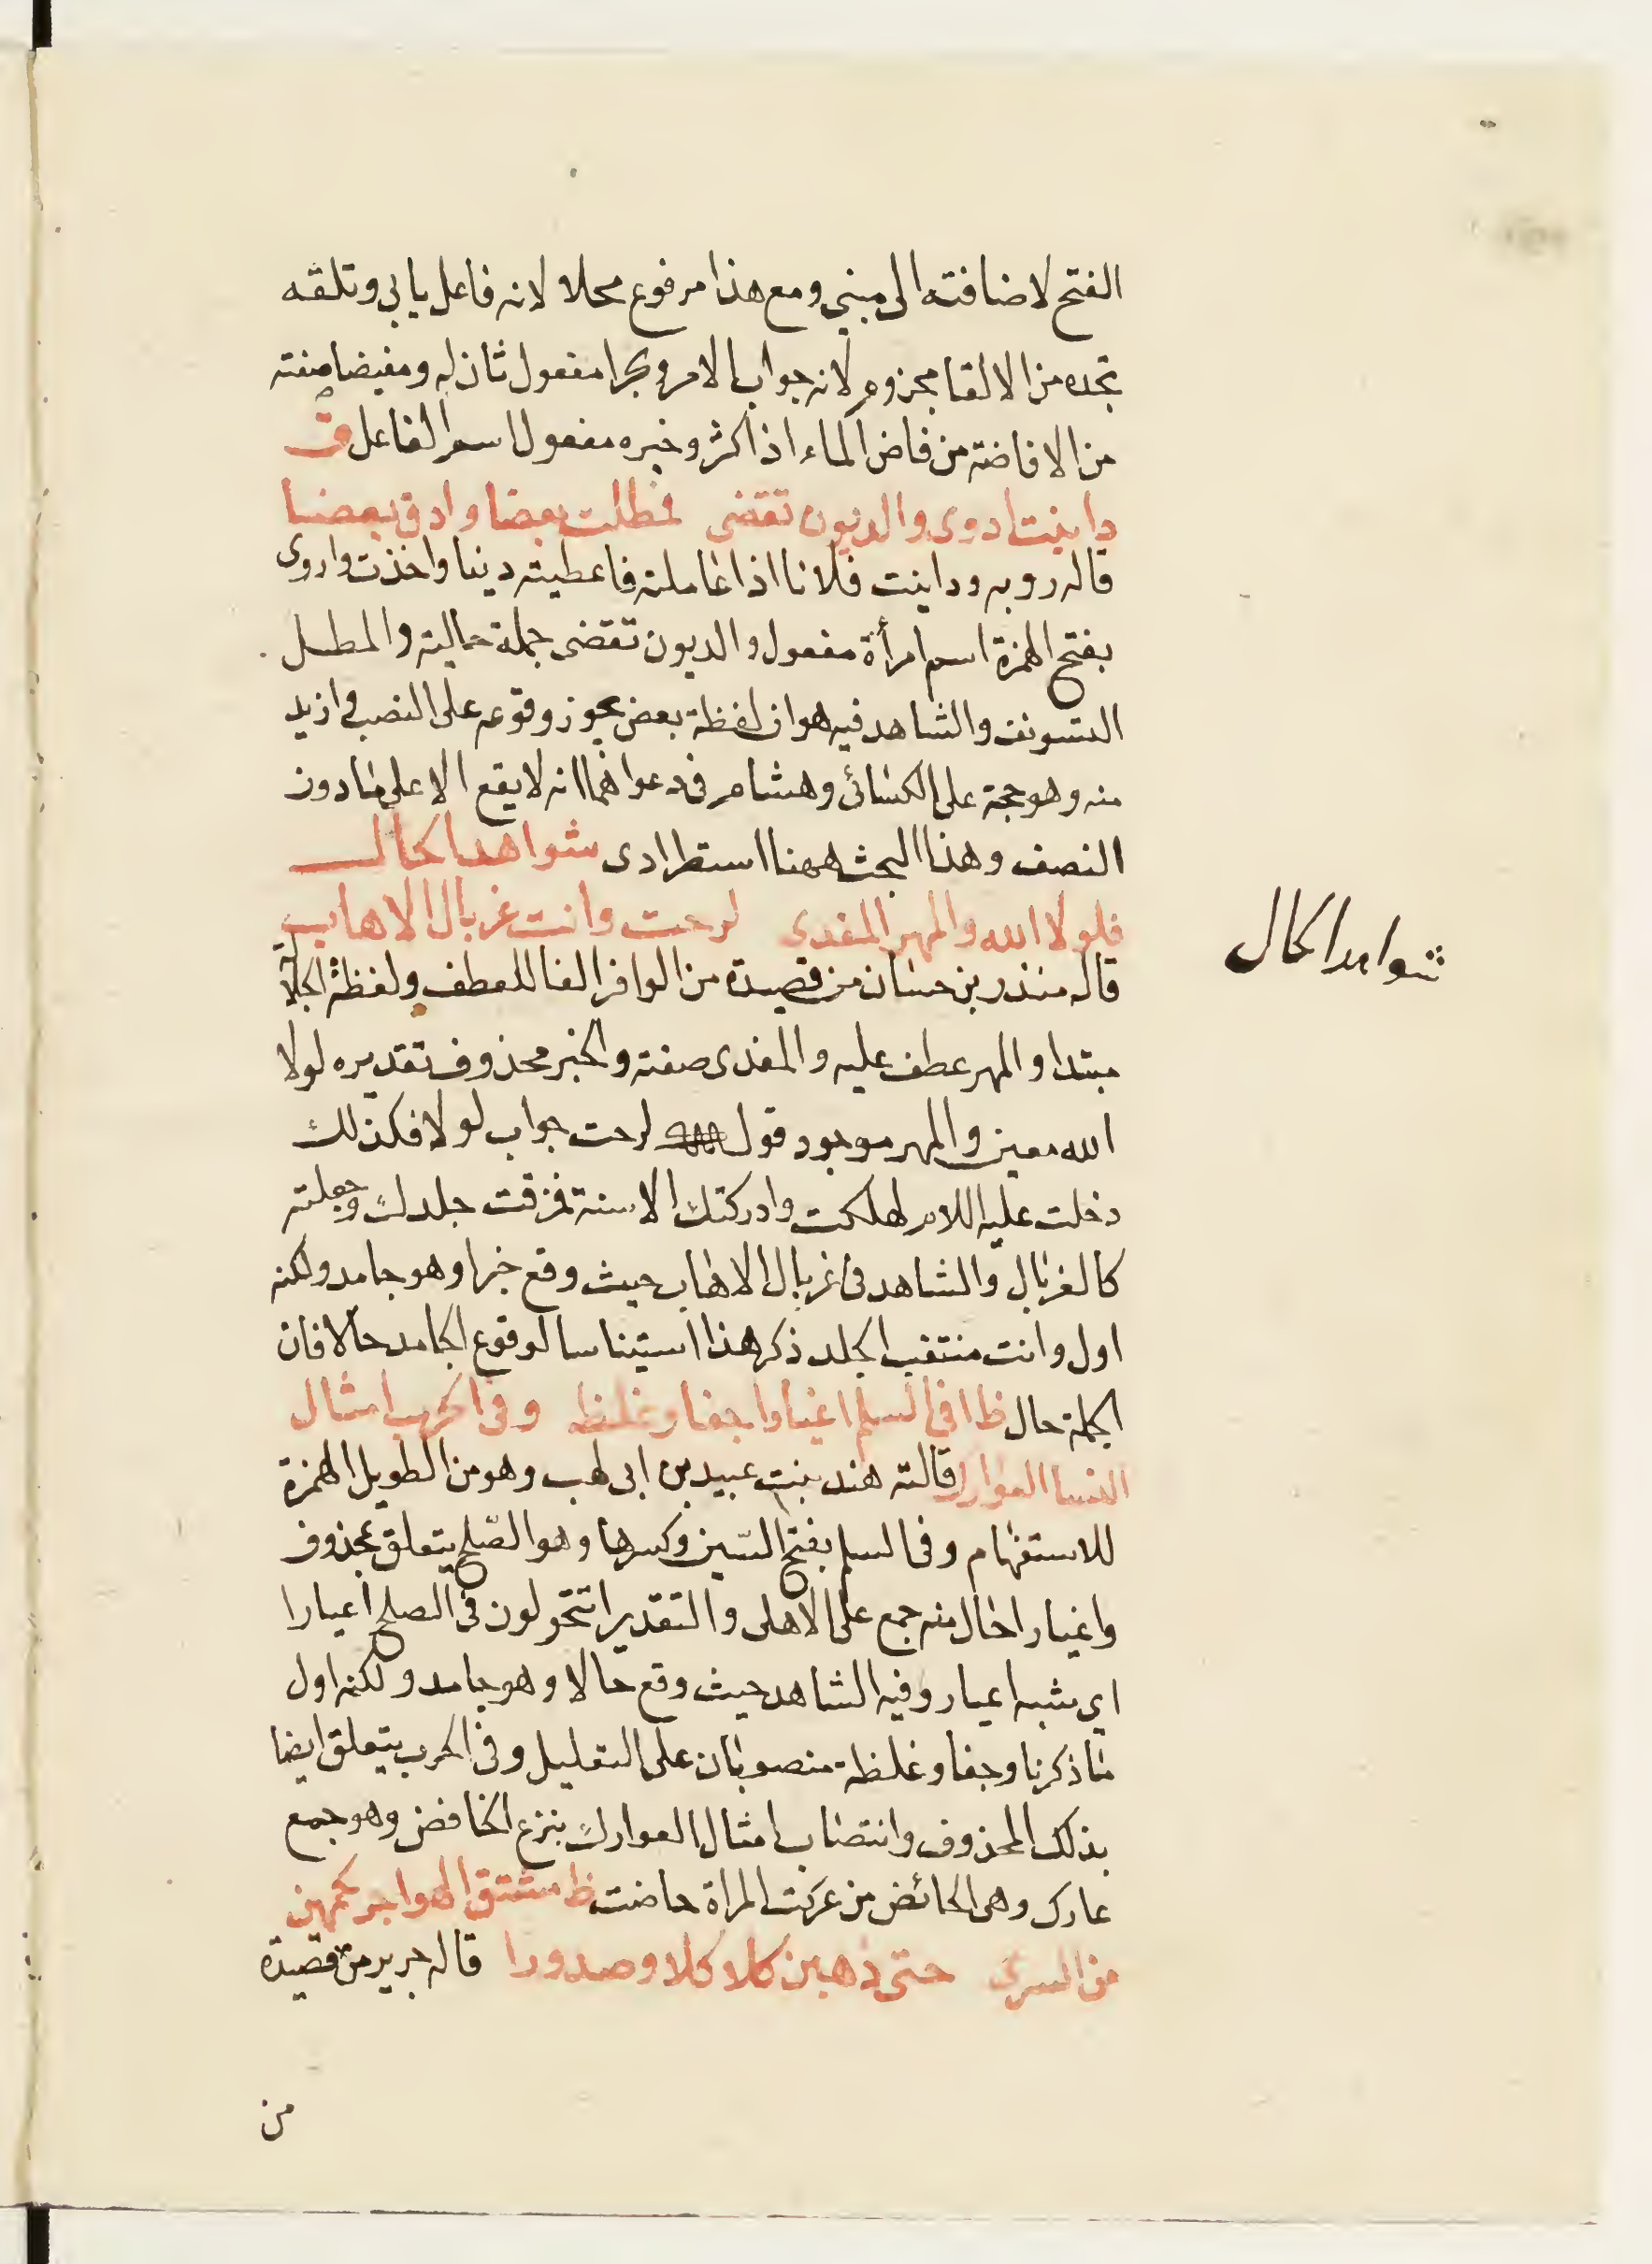 الفتح لاضافته الى مبني ومع هذا مرفوع محلا لانه فاعل يابى وتلقه
تجده من الالقا مجزوم لانه جواب الامر وبحرا مفعول ثان له ومفيضا صفته
من الافاضة من فاض الماء اذا كثر وخيره مفعول اسم الفاعل ق
داينت اروى والديون تقضى فمطلت بعضا وادت بعضا
قاله روبه وداينت فلانا اذا عاملته فاعطيته دينا واخذت واروى
بفتح الهمزة اسم امرأة مفعول والديون تقضى جملة حالية والمطل
التسويف والشاهد فيه هو ان لفظة بعض يجوز وقوعه على النصف وازيد
منه وهو حجة على الكسائي وهشام في دعواهما انه لا يقع الا على ما دون
النصف وهذا البحث ههنا استطرادى شواهد الحال
فلولا الله والمهر المفدى لرحت وانت غربال الاهاب
شواهد الحال
قاله منذر بن حسان من قصيدة من الوافر الفا للعطف ولفظة الجلالة
مبتدا والمهر عطف عليه والمفدى صفته والخبر محذوف تقديره لولا
الله معين والمهر موجود قول لرحت جواب لولا فكذلك
دخلت عليه اللام لهلكت وادركتك الاسنة فمزقت جلدك وجعلته
كالغربال والشاهد في غربال الاهاب حيث وقع خبرا وهو جامد ولكنه
اول وانت منتقب الجلد ذكر هذا استيناسا لوقوع الجامد حالا فان
الجملة حال ظ افي السلم اعيارا جفا وغلظة وفي الحرب امثال
النسا العوارك قالته هند بنت عبيد بن ابى لهب وهو من الطويل الهمزة
للاستفهام وفى السلم بفتح السين وكسرها وهو الصلح يتعلق بمحذوف
واعيارا حال منه جمع على الاهلى والتقدير اتتحولون فى الصلح اعيارا
اي شبه اعيار وفيه الشاهد حيث وقع حالا وهو جامد ولكنه اول
ما ذكرنا وجفا وغلظة منصوبان على التعليل وفى الحرب يتعلق ايضا
بذلك المحذوف وانتصاب امثال العوارك بنزع الخافض وهو جمع
عارك وهى الحائض من عركت المراة حاضت ظ مشق الهواجر لحمهن
من السرى حتى ذهبن كلا كلا وصدورا قاله جرير من قصيدة
من